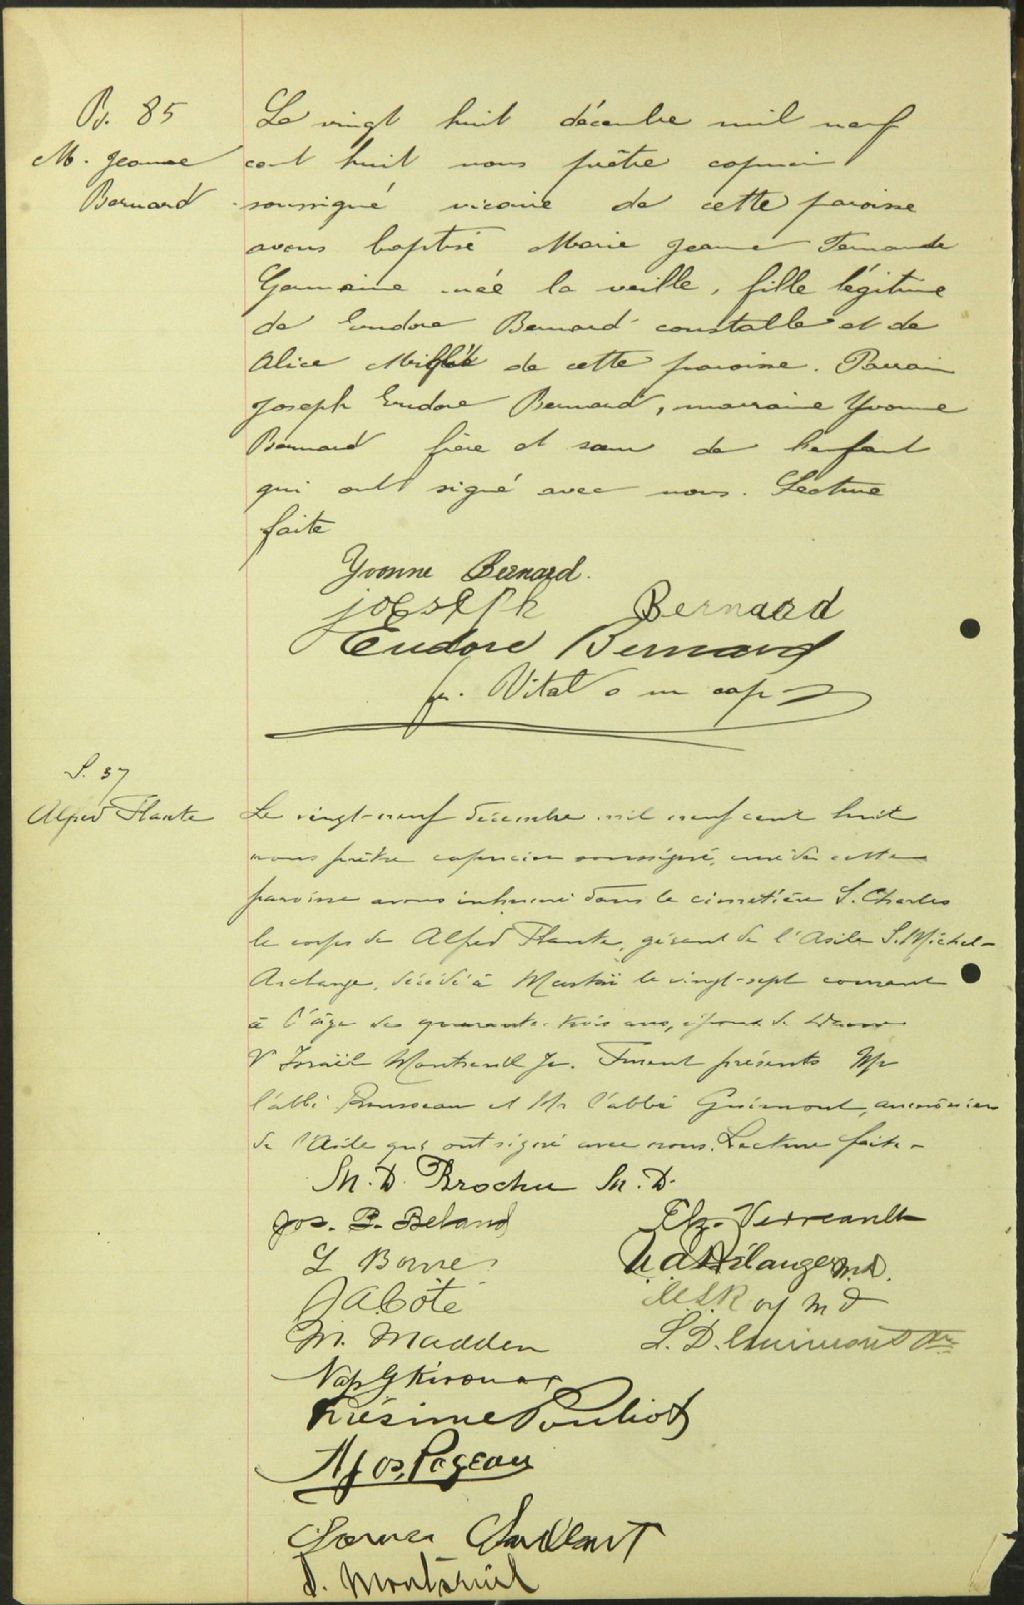 B. 85
M. Jeanne
Bernard
Le vingt huit décembre mil neuf
cent huit nous prêtre capucin
soussigné vicaire de cette paroisse
avons baptisé Marie Jeanne Fernande
Germaine née la veille, fille légitime
de Eudore Bernard constable et de
Alice de cette paroisse. Parrain
Joseph Eudore Bernard, marraine Yvonne
Bernard frère et soeur de l'enfant
qui ont signé avec nous. Lecture
faite
Yvonne Bernard.
joseph Bernard
Eudore Bernard
fr. Vital o m cap
S. 37
Alfred Plante
Le vingt-neuf décembre mil neuf cent huit
nous prêtre capucin soussigné, curé de cette
paroisse avons inhumé dans le cimetière S. Charles
le corps de Alfred Plante, gérant de l'Asile S. Michel-
Archange, décédé à le vingt-sept courant
à l'âge de quarante-trois ans, époux de
Israël Montreuil Jr. Furent présents Mr
l'abbé Rousseau et Mr l'abbé Guimont, aumônier
de l'Asile qui ont signé avec nous. Lecture faite -
M. D. Brochu M. D.
Jos. P. Beland
Elz. Verreault
Bélanger M.D.
J A Côté
Roy M D
M. Madden
L. D. Guimont Ptre
Nap G Kirouac
Onésime Pouliot
Jos. Pageau
D. Montreuil